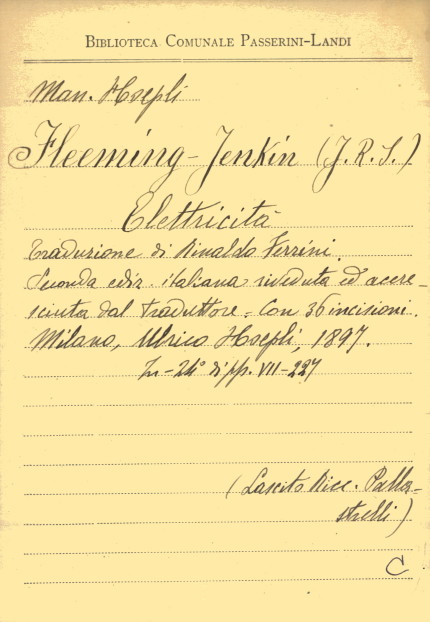 BIBLIOTECA COMUNALE PASSERINI-LANDI
Man. Hoepli
Fleeming-Jenkin (J. R. S.)
Elettricità
Traduzione di Rinaldo Ferrini.
Seconda ediz. italiana riveduta ed accre-
sciuta dal traduttore = Con 36 incisioni.
Milano, Ulrico Hoepli, 1897.
In-24° di pp. VII-227
(Lascito Nicc. Palla-
strelli)
C